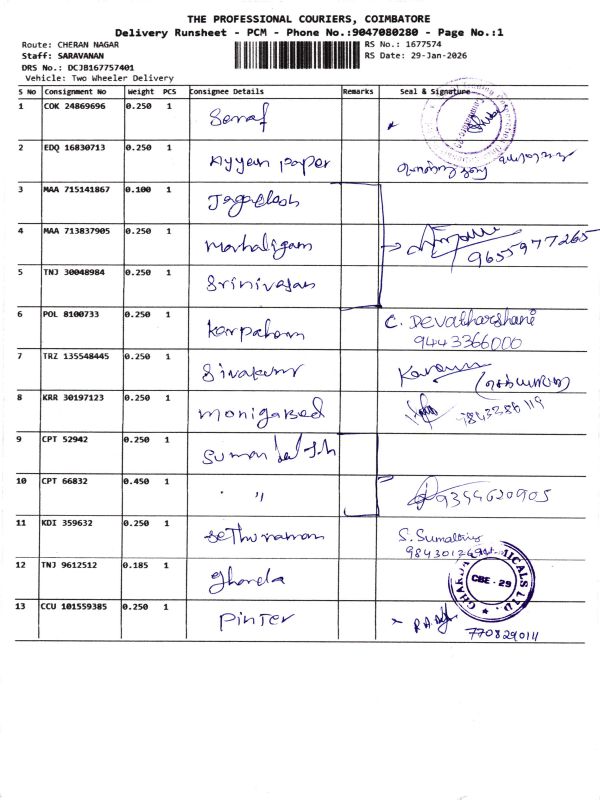 THE PROFESSIONAL COURIERS, COIMBATORE
Delivery Runsheet - PCM - Phone No.:9047080280 - Page No.:1
Route: CHERAN NAGAR
RS No.: 1677574
Staff: SARAVANAN
RS Date: 29-Jan-2026
DRS No.: DCJB167757401
Vehicle: Two Wheeler Delivery
S No Consignment No Weight PCS Consignee Details Remarks Seal & Signature
1 COK 24869696 0.250 1
2 EDQ 16830713 0.250 1 Ayyan paper
3 MAA 715141867 0.100 1 Jagadesh
4 MAA 713837905 0.250 1 mahaligam
9655977265
5 TNJ 30048984 0.250 1 Srinivasan
6 POL 8100733 0.250 1 Karpaham C. Devadharshani
9443366000
7 TRZ 135548445 0.250 1 Sivakumr
8 KRR 30197123 0.250 1
9 CPT 52942 0.250 1
10 CPT 66832 0.450 1 " 9354620905
11 KDI 359632 0.250 1 Sethuraman S. Sumathi
12 TNJ 9612512 0.185 1
CBE - 29
13 CCU 101559385 0.250 1 Pinter
7708290111